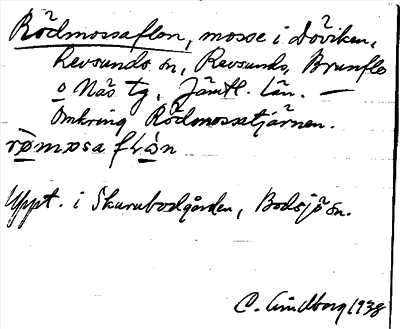 Rödmossaflon, mosse i Döviken,
Revsunds sn, Revsunds, Brunflo
o Näs tg, Jämtl. län. —
Omkring Rödmossetjärnen.
Uppt. i Skurubodgården, Bodsjö sn.
C. Lindborg 1938